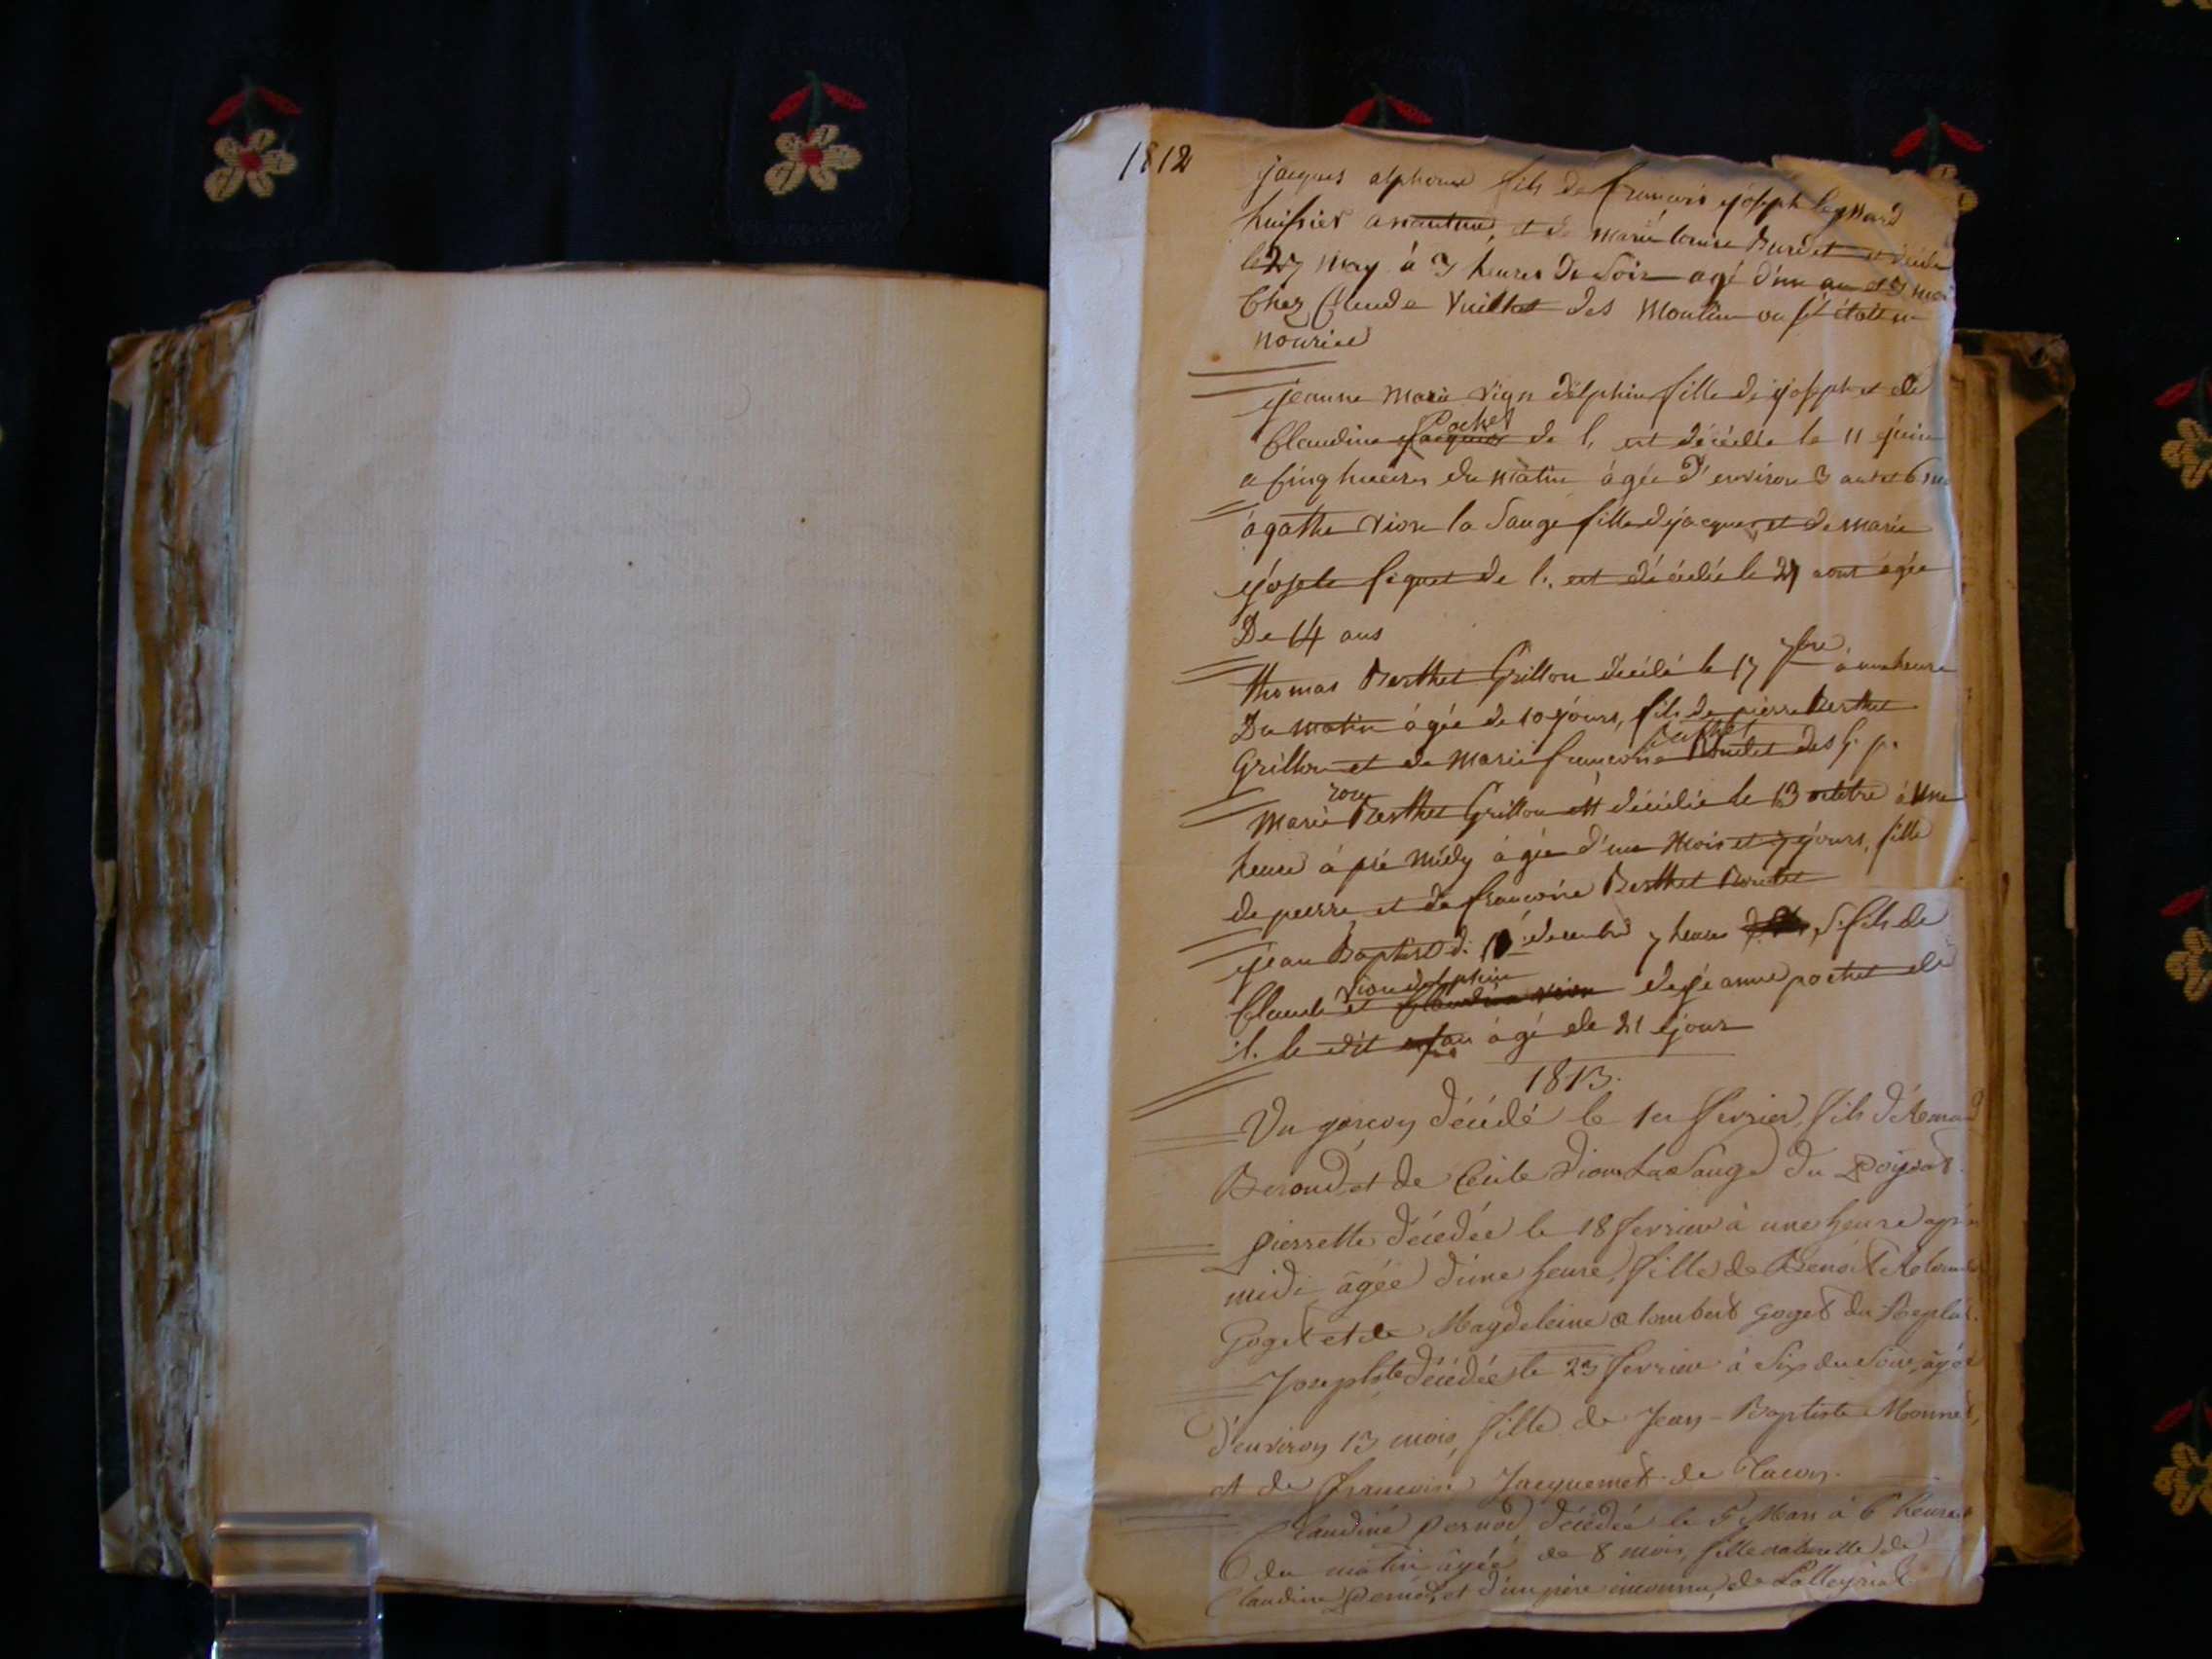 1812
jacques alphonse fils de françois joseph
huissier a nantua, et de marie louise Burdet et décédé
le 27 may à 3 heures du Soir agé d'un an et
Chez Claude Vuillet des Moulin ou il étoit en
nourice
jeanne marie delphin fille de joseph et de
Pochet
Claudine de l. est décédée le 11 juin
a Cinq heures du matin âgée d'environ 3 ans et 6
agathe Vion la Sauge fille de jacques et de marie
josete de l. est décédée le aout âgée
De 14 ans
thomas Berthet Grillon décédé le 17 7bre à une heure
Du matin âgée de 10 jours, fils de pierre Berthet
Grillon et de marie françoise des
rose
marie Berthet Grillon est décédée le 13 octobre à une
heure âgée d'un mois et 7 jours, fille
de pierre et de françoise Berthet
jean Baptiste d. decembre 7 heures fils de
vion delphin
Claude et de jeanne pochet de
l. le dit agé de 21 jour
1813.
Un garçon décédé le 1er fevrier, fils
Beroud et de Cecile Vion La Sauge du Poizat
pierrette décédée le 18 fevrier à une heure après
midi âgée d'une heure, fille de Benoit
Goget et de Magdeleine Goget du
Josephte décédée le 23 fevrier à Six du Soir, âgée
d'environ 13 mois, fille de Jean-Baptiste Monnet,
et de françoise Jacquemet de Tacon.
Claudine Pernod décédée le 5 Mars à 6 heures
du matin, âgée de 8 mois, fille naturelle de
Claudine Pernod, et d'un père inconnu, de Lalleyriat